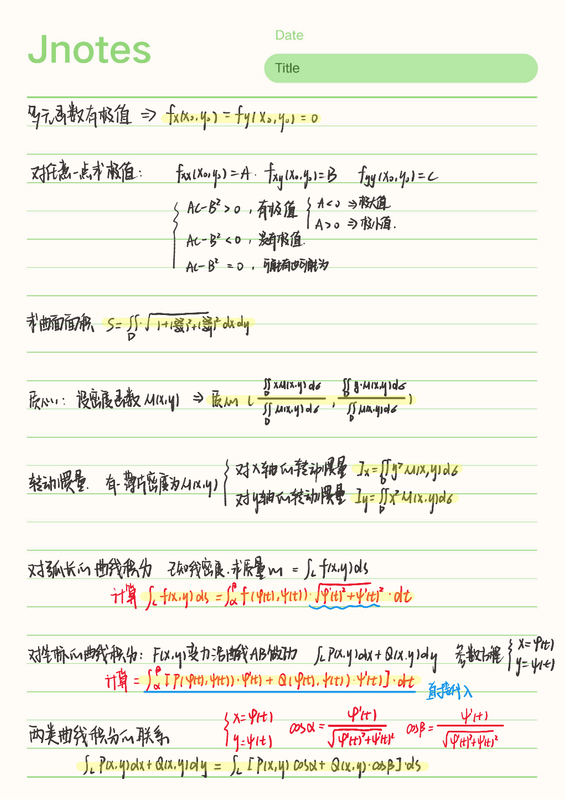 Jnotes
Date
Title
多元函数有极值 ⇒ fx(x₀,y₀) = fy(x₀,y₀) = 0
对任意一点求极值: fxx(x₀,y₀)=A. fxy(x₀,y₀)=B fyy(x₀,y₀)=C
AC-B² > 0, 有极值 { A<0 ⇒极大值
A>0 ⇒极小值.
AC-B² < 0, 没有极值.
AC-B² = 0,
求曲面面积 S=∬_D √(1+(∂z/∂x)²+(∂z/∂y)²) dxdy
质心: 设密度函数 μ(x,y) ⇒ 质心 ( ∬_D xμ(x,y)dσ / ∬_D μ(x,y)dσ , ∬_D y·μ(x,y)dσ / ∬_D μ(x,y)dσ )
转动惯量. 有一薄片密度为μ(x,y) { 对x轴的转动惯量 Ix=∬_D y²μ(x,y)dσ
对y轴的转动惯量 Iy=∬_D x²μ(x,y)dσ
对弧长的曲线积分 已知线密度.求质量m = ∫_L f(x,y)ds
计算 ∫_L f(x,y)ds = ∫_α^β f(φ(t),ψ(t))·√(φ'(t)²+ψ'(t)²)·dt
对坐标的曲线积分: F(x,y)变力沿曲线AB做功 ∫_L P(x,y)dx+Q(x,y)dy 参数方程 { x=φ(t)
y=ψ(t)
计算 = ∫_α^β [P(φ(t),ψ(t))·φ'(t) + Q(φ(t),ψ(t))·ψ'(t)]·dt 直接代入
两类曲线积分的联系 { x=φ(t) y=ψ(t) cosα = φ'(t)/√(φ'(t)²+ψ'(t)²) cosβ = ψ'(t)/√(φ'(t)²+ψ'(t)²)
∫_L P(x,y)dx+Q(x,y)dy = ∫_L [P(x,y)cosα+Q(x,y)·cosβ]·ds